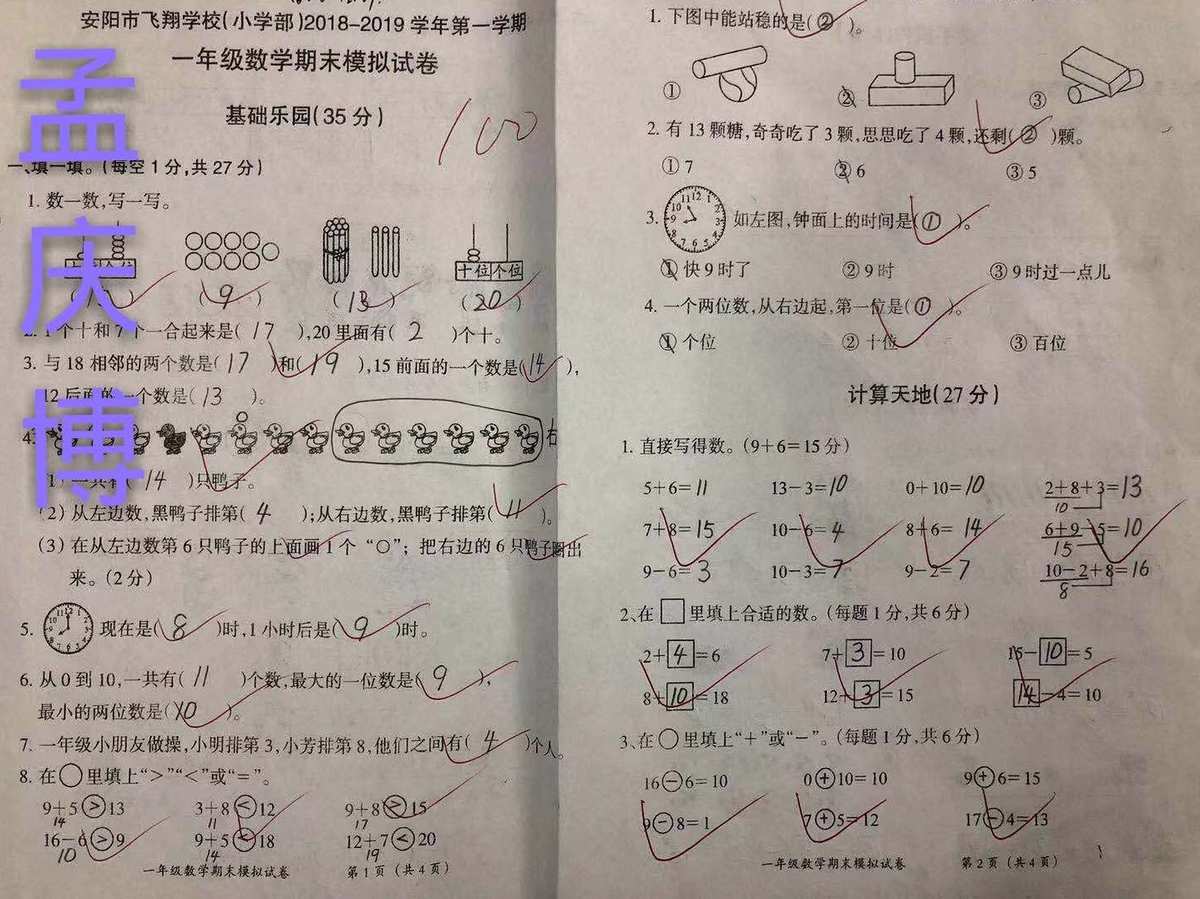 安阳市飞翔学校(小学部)2018-2019学年第一学期
一年级数学期末模拟试卷
基础乐园(35分)
100
孟庆博
一、填一填。(每空1分,共27分)
1. 数一数,写一写。
十位个位
(9) (13) (20)
2. 1个十和7个一合起来是(17),20里面有(2)个十。
3. 与18相邻的两个数是(17)和(19),15前面的一个数是(14),
12后面的一个数是(13)。
4.
右
(1) 一共有(14)只鸭子。
(2) 从左边数,黑鸭子排第(4);从右边数,黑鸭子排第(11)。
(3) 在从左边数第6只鸭子的上面画1个“○”；把右边的6只鸭子圈出
来。(2分)
5. 现在是(8)时,1小时后是(9)时。
6. 从0到10,一共有(11)个数,最大的一位数是(9),
最小的两位数是(10)。
7. 一年级小朋友做操,小明排第3,小芳排第8,他们之间有(4)个人。
8. 在○里填上“>”“<”或“=”。
9+5>13 3+8<12 9+8>15
14 11 17
16-6>9 9+5<18 12+7<20
10 14 19
一年级数学期末模拟试卷 第1页(共4页)
1. 下图中能站稳的是(②)。
① ② ③
2. 有13颗糖,奇奇吃了3颗,思思吃了4颗,还剩(②)颗。
①7 ②6 ③5
3. 如左图,钟面上的时间是(①)。
①快9时了 ②9时 ③9时过一点儿
4. 一个两位数,从右边起,第一位是(①)。
①个位 ②十位 ③百位
计算天地(27分)
1. 直接写得数。(9+6=15分)
5+6=11 13-3=10 0+10=10 2+8+3=13
10
7+8=15 10-6=4 8+6=14 6+9-5=10
15
9-6=3 10-3=7 9-2=7 10-2+8=16
8
2、在□里填上合适的数。(每题1分,共6分)
2+4=6 7+3=10 15-10=5
8+10=18 12+3=15 14-4=10
3、在○里填上“+”或“-”。(每题1分,共6分)
16-6=10 0+10=10 9+6=15
9-8=1 7+5=12 17-4=13
一年级数学期末模拟试卷 第2页(共4页)